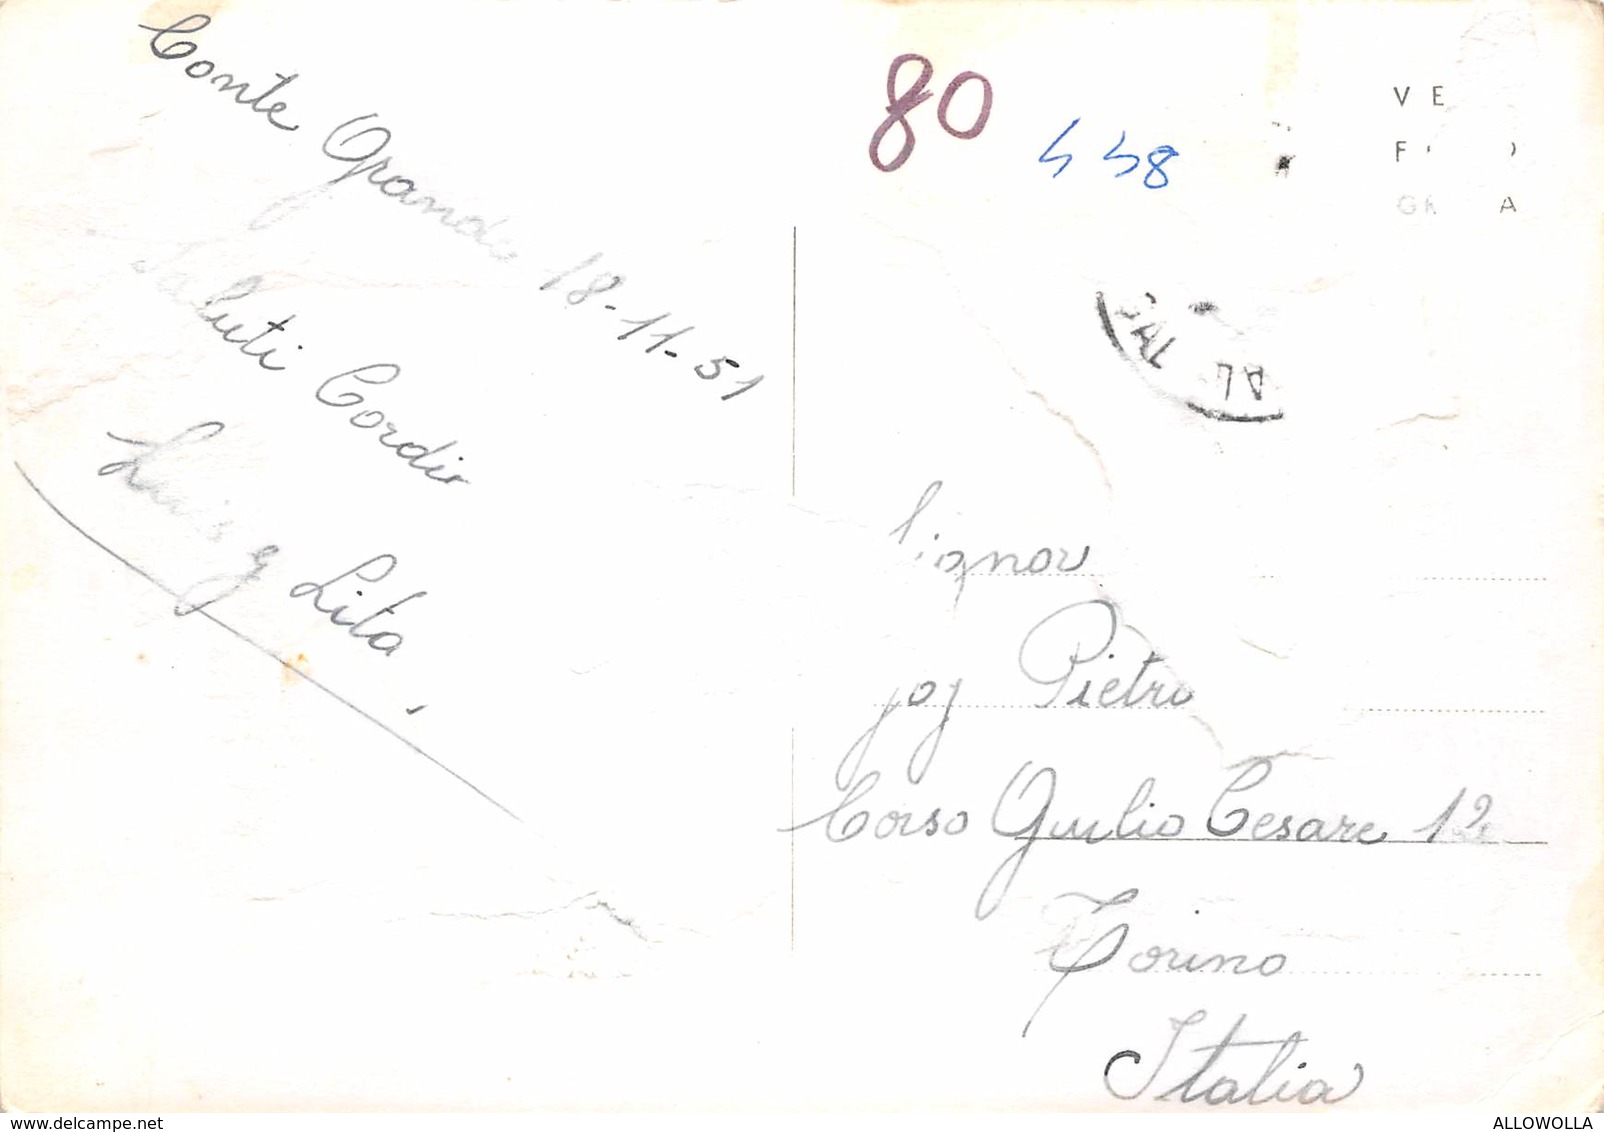 Conte Grande 18-11-51
Saluti Cordio
Luisa e Lita
80
448
VE
F
GR A
Signor
Pietro
Corso Giulio Cesare 12
Torino
Italia
ALLOWOLLA